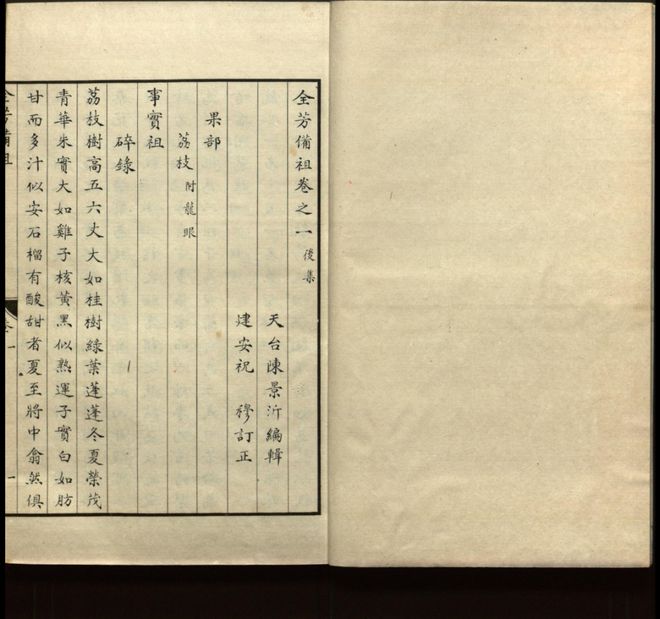 全芳備祖卷之一 後集
天台陳景沂編輯
建安祝 穆訂正
果部
荔枝 附龍眼
事實祖
碎錄
荔枝樹高五六丈大如桂樹綠葉蓬蓬冬夏榮茂
青華朱實大如雞子核黃黑似熟運子實白如肪
甘而多汁似安石榴有酸甜者夏至將中翕然俱
全芳備祖
卷一
一